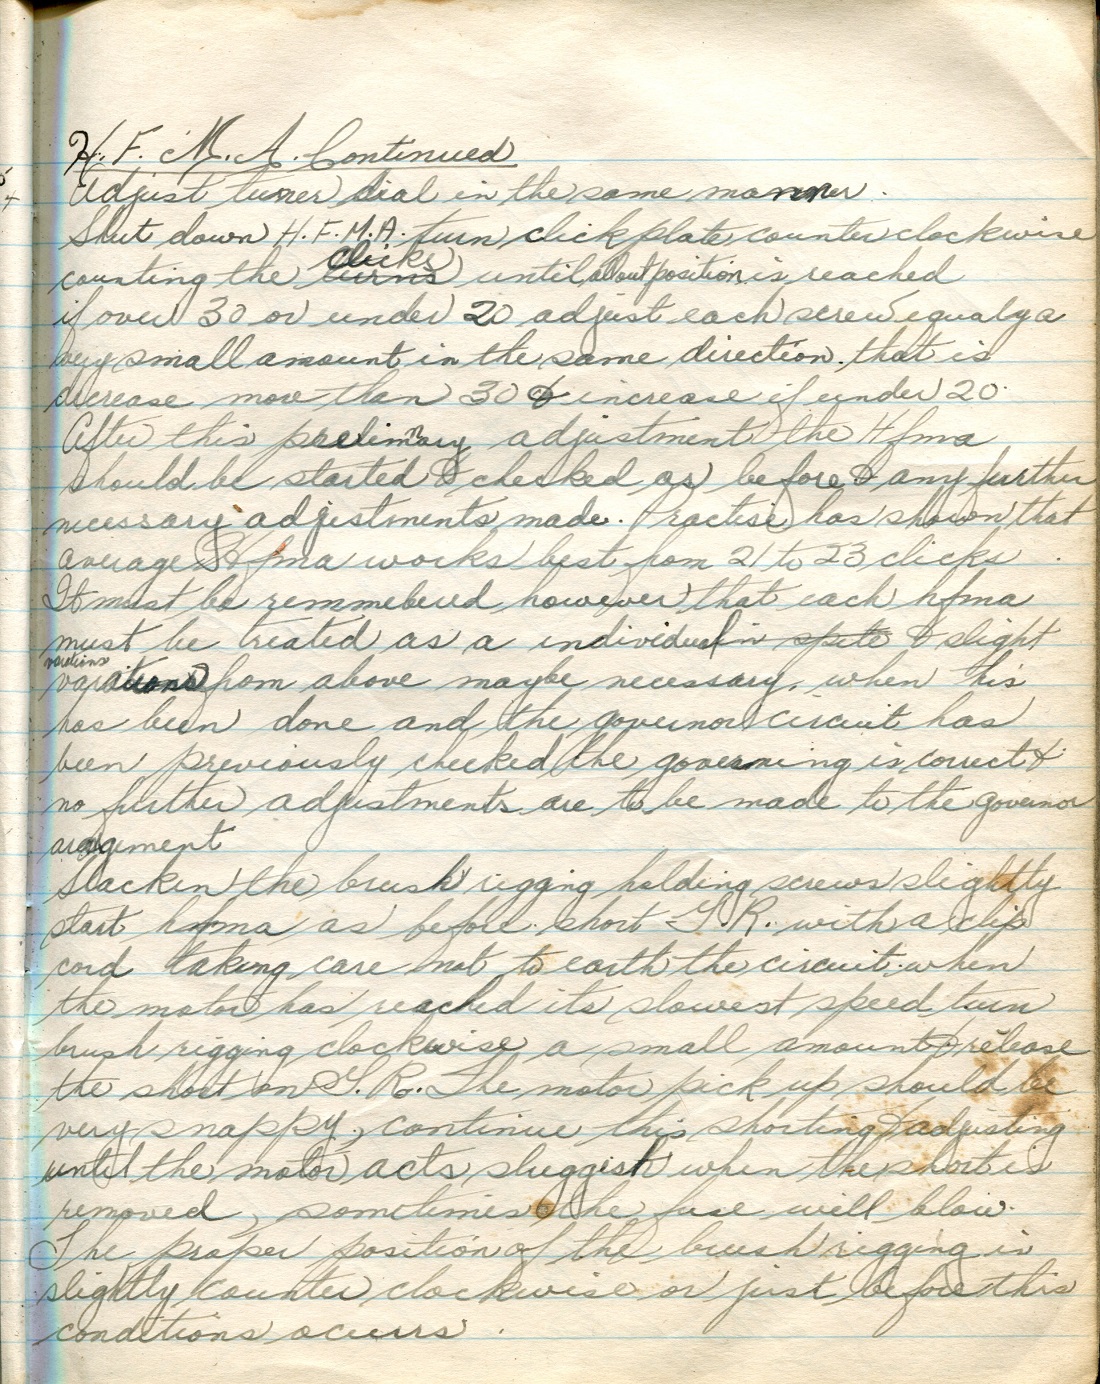 H. F. M. A. Continued
Adjust tuner dial in the same manner.
Shut down H.F.M.A. turn click plate counter clockwise
clicks
counting the turns until about position is reached
if over 30 or under 20 adjust each screw equaly a
very small amount in the same direction. that is
decrease more than 30 & increase if under 20.
After this prelimnary adjustment the Hfma
should be started & checked as before & any further
necessary adjustments made. Practise has shown that
average Hfma works best from 21 to 23 clicks.
It must be remmebered however that each hfma
must be treated as a individual in spite & slight
varations
varations from above maybe necessary. when this
has been done and the governor circuit has
been previously checked the governing is correct &
no further adjustments are to be made to the governor
aragement
Slacken the brush rigging holding screws slightly
start hfma as before. short G.R. with a clip
cord taking care not to earth the circuit. when
the motor has reached its slowest speed turn
brush rigging clockwise a small amount & release
the short on G.R. The motor pick up should be
very snappy, continue this shorting & adjusting
until the motor acts sluggish when the short is
removed, sometimes the fuse will blow.
The proper position of the brush rigging is
slightly counter clockwise or just before this
conditions ocurrs.